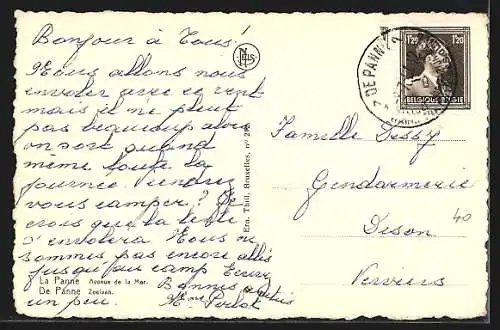 Bonjour à Tous!
Nous allons nous
envoler avec ce vent
mais il ne pleut
pas beaucoup alors
on sort quand
même toute la
journée. Viendrez
vous camper? Je
crois que la tente
s'envolera. Nous ne
sommes pas encore allés
jusqu'au camp
un peu. Bonnes amitiés
Mme
La Panne Avenue de la Mer.
De Panne Zeelaan.
NELS
Ern. Thill, Bruxelles, n°
DE PANNE
1.20 1.20
BELGIQUE-BELGIE
Famille Dessy
Gendarmerie
Dison
Verviers
40